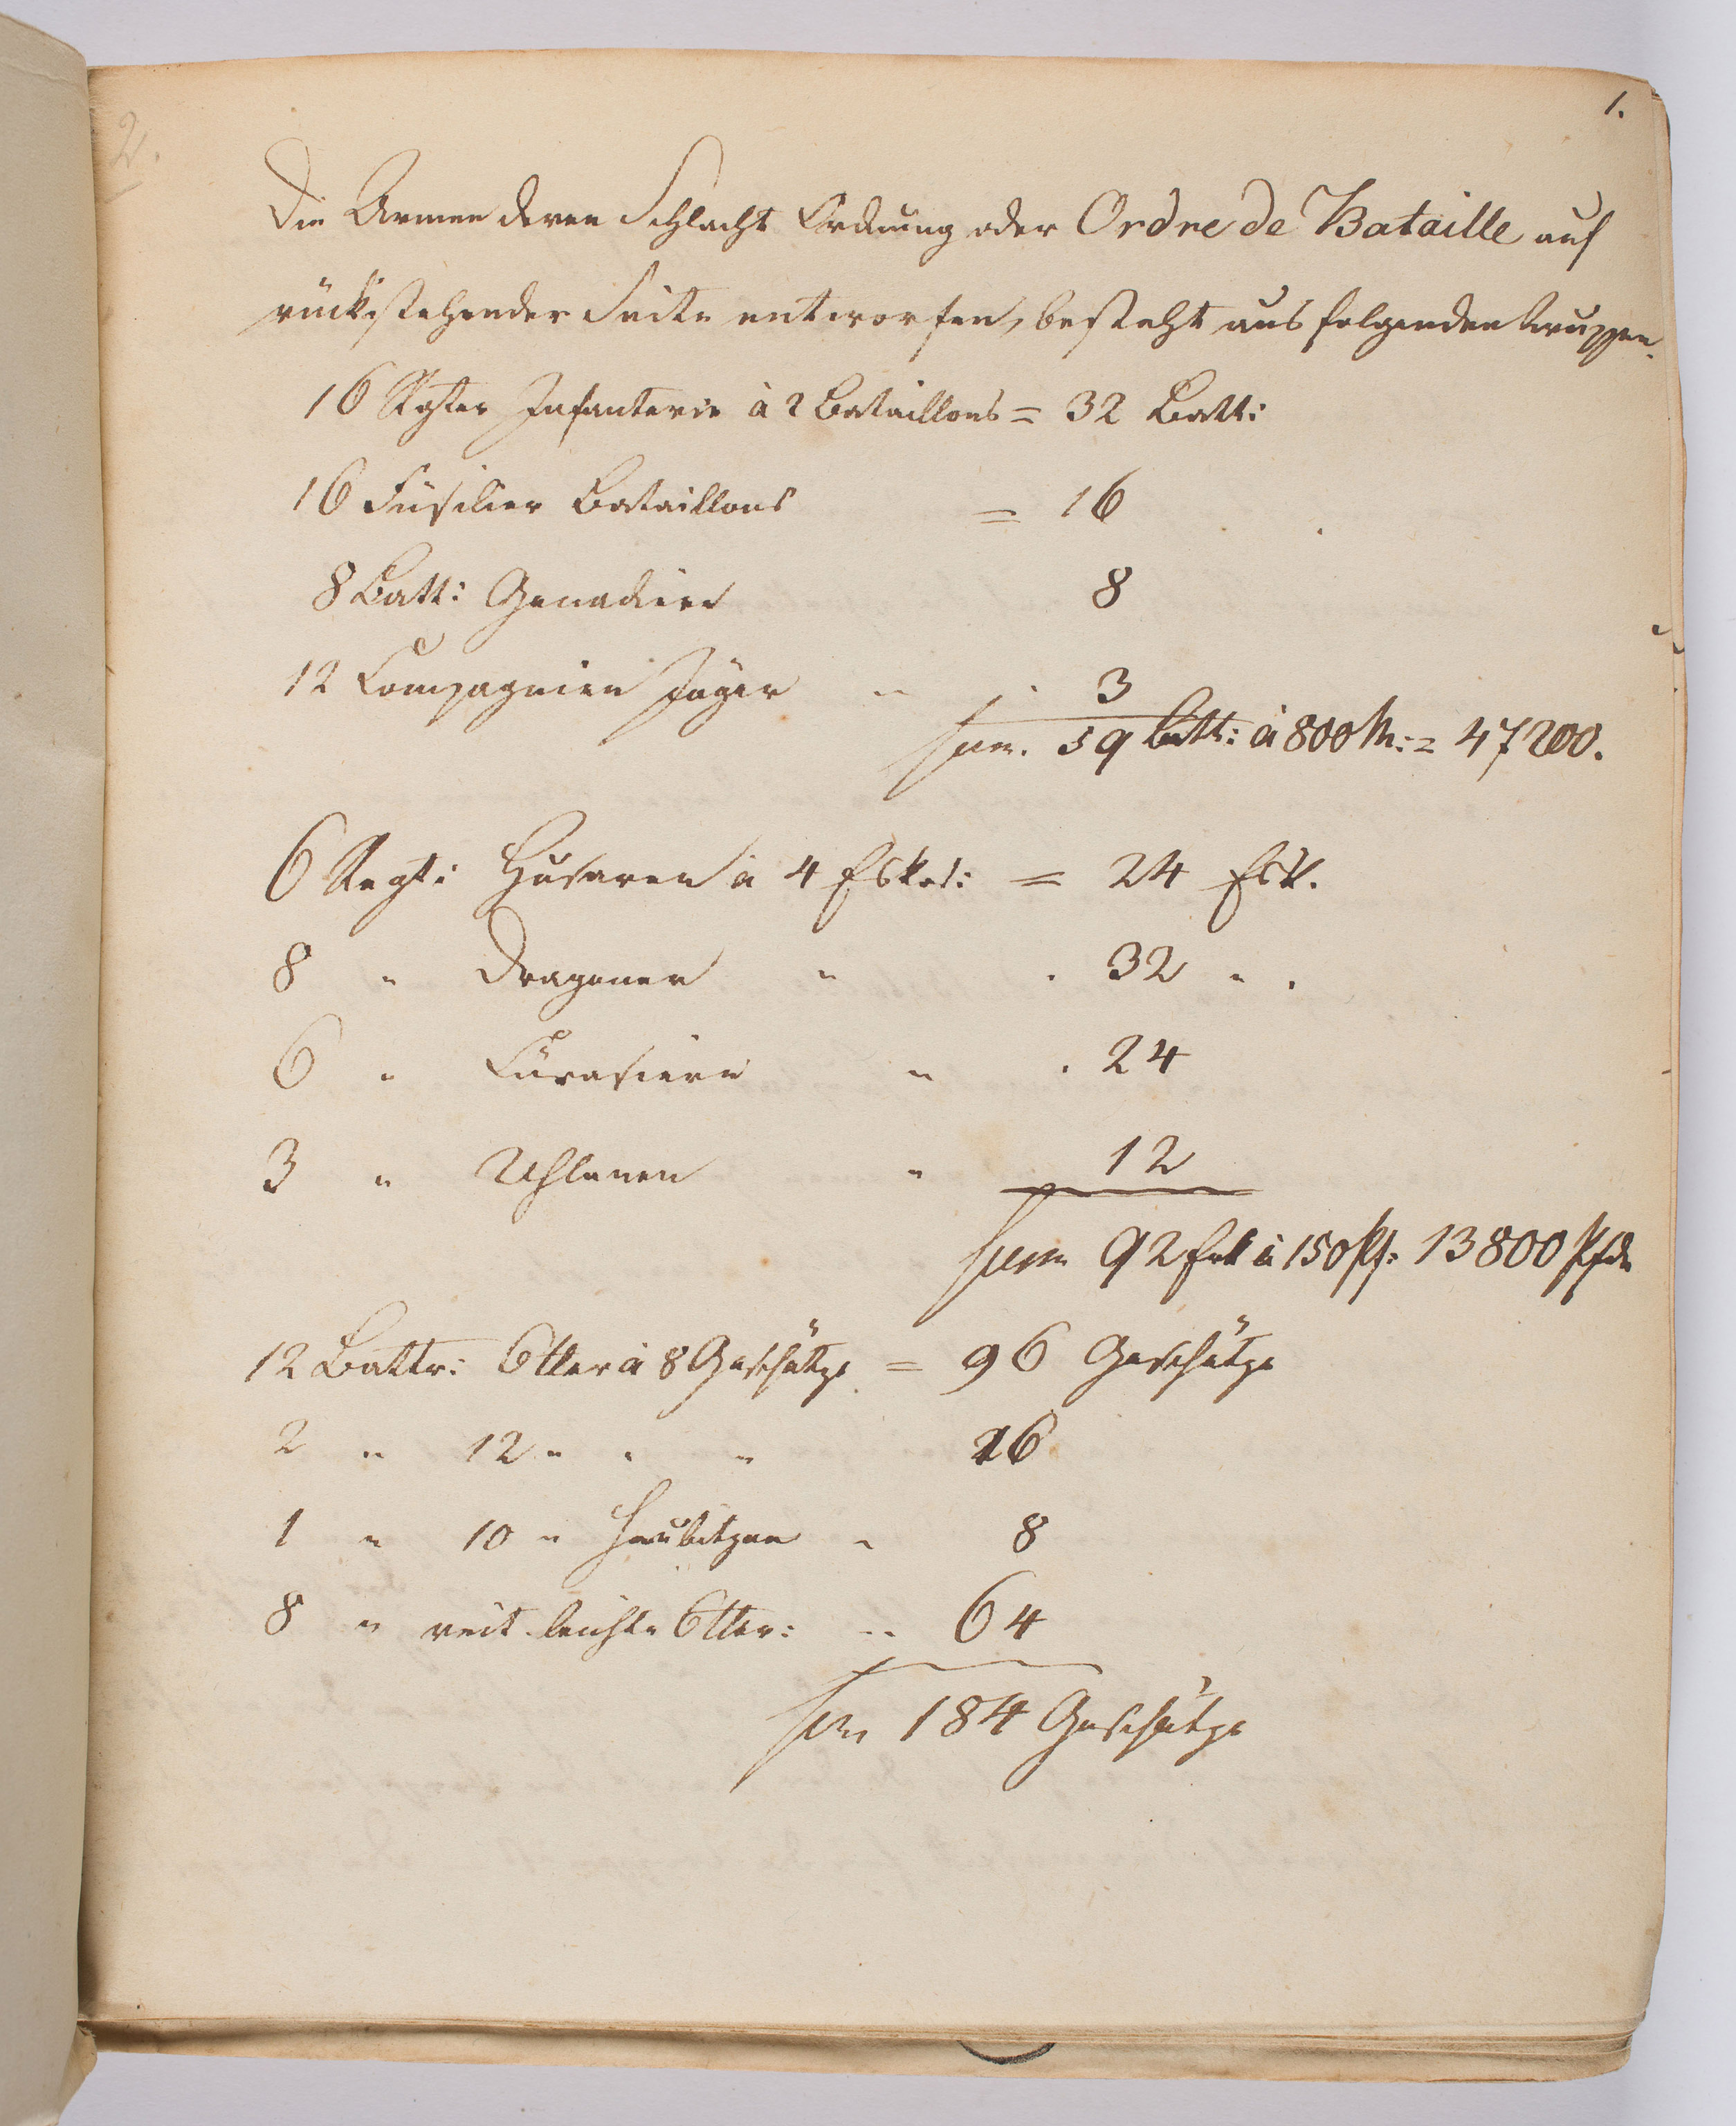 1.
2.
Die Armee deren Schlacht Ordnung oder Ordre de Bataille auf
rückstehender Seite entworfen, besteht aus folgenden Truppen.
16 Rgter Infanterie à 2 Bataillons = 32 Batt:
16 Füsilier Bataillons = 16
8 Batt: Grenadiere 8
12 Compagnien Jäger " . 3
Sum. 59 Batt: à 800 M: = 47200.
6 Regt: Husaren à 4 Eskad: = 24 Esk.
8 " Dragoner " . 32 " .
6 " Cürasiere " . 24
3 " Uhlanen " 12
Sum 92 Esk à 150 Pf: 13800 Pfde
12 Battr: 6tter à 8 Geschütze = 96 Geschütze
2 " 12 " " " 16
1 " 10 " Haubitzen " 8
8 " reit. leichte 6tter: " 64
Sum 184 Geschütze